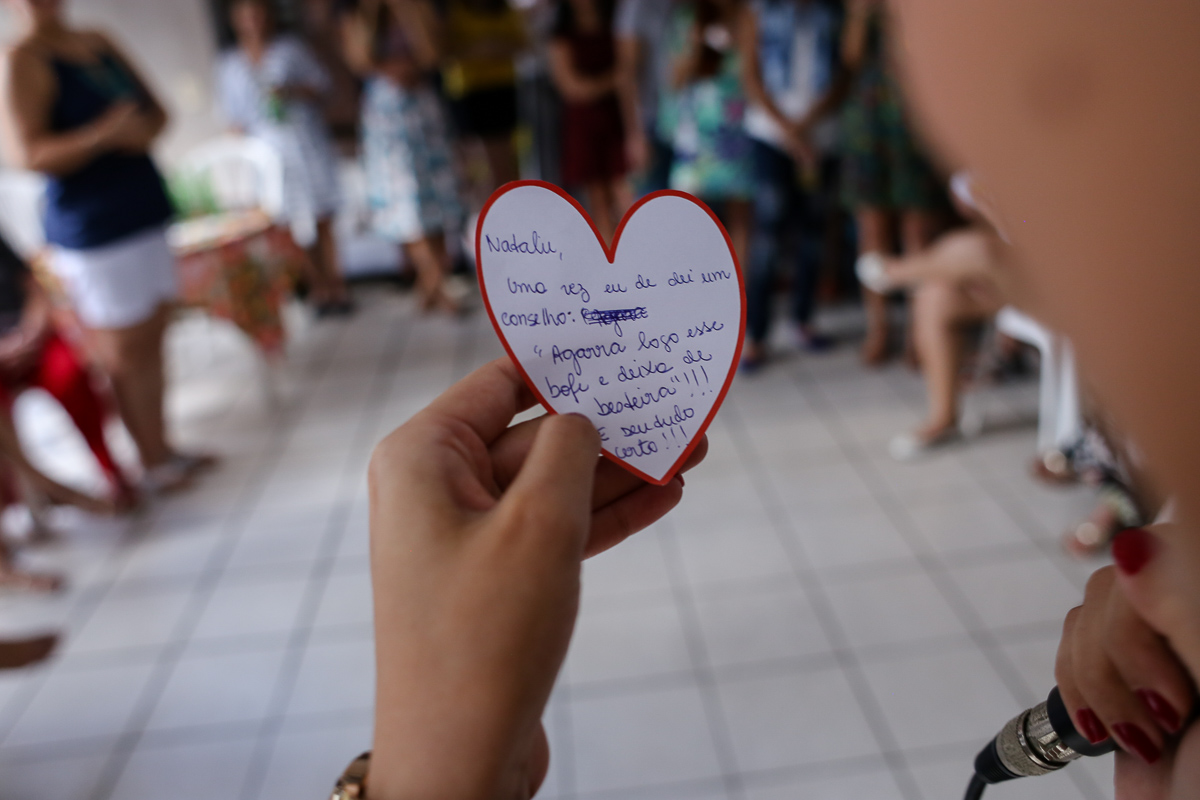 Nataly,
Uma vez eu de dei um
conselho:
"Agarra logo esse
bofe e deixa de
besteira"!!!
E deu tudo
certo!!!